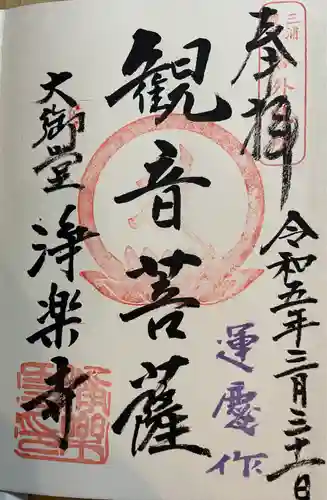 奉拝
令和五年三月三十一日
運慶作
観音菩薩
大御堂
浄楽寺